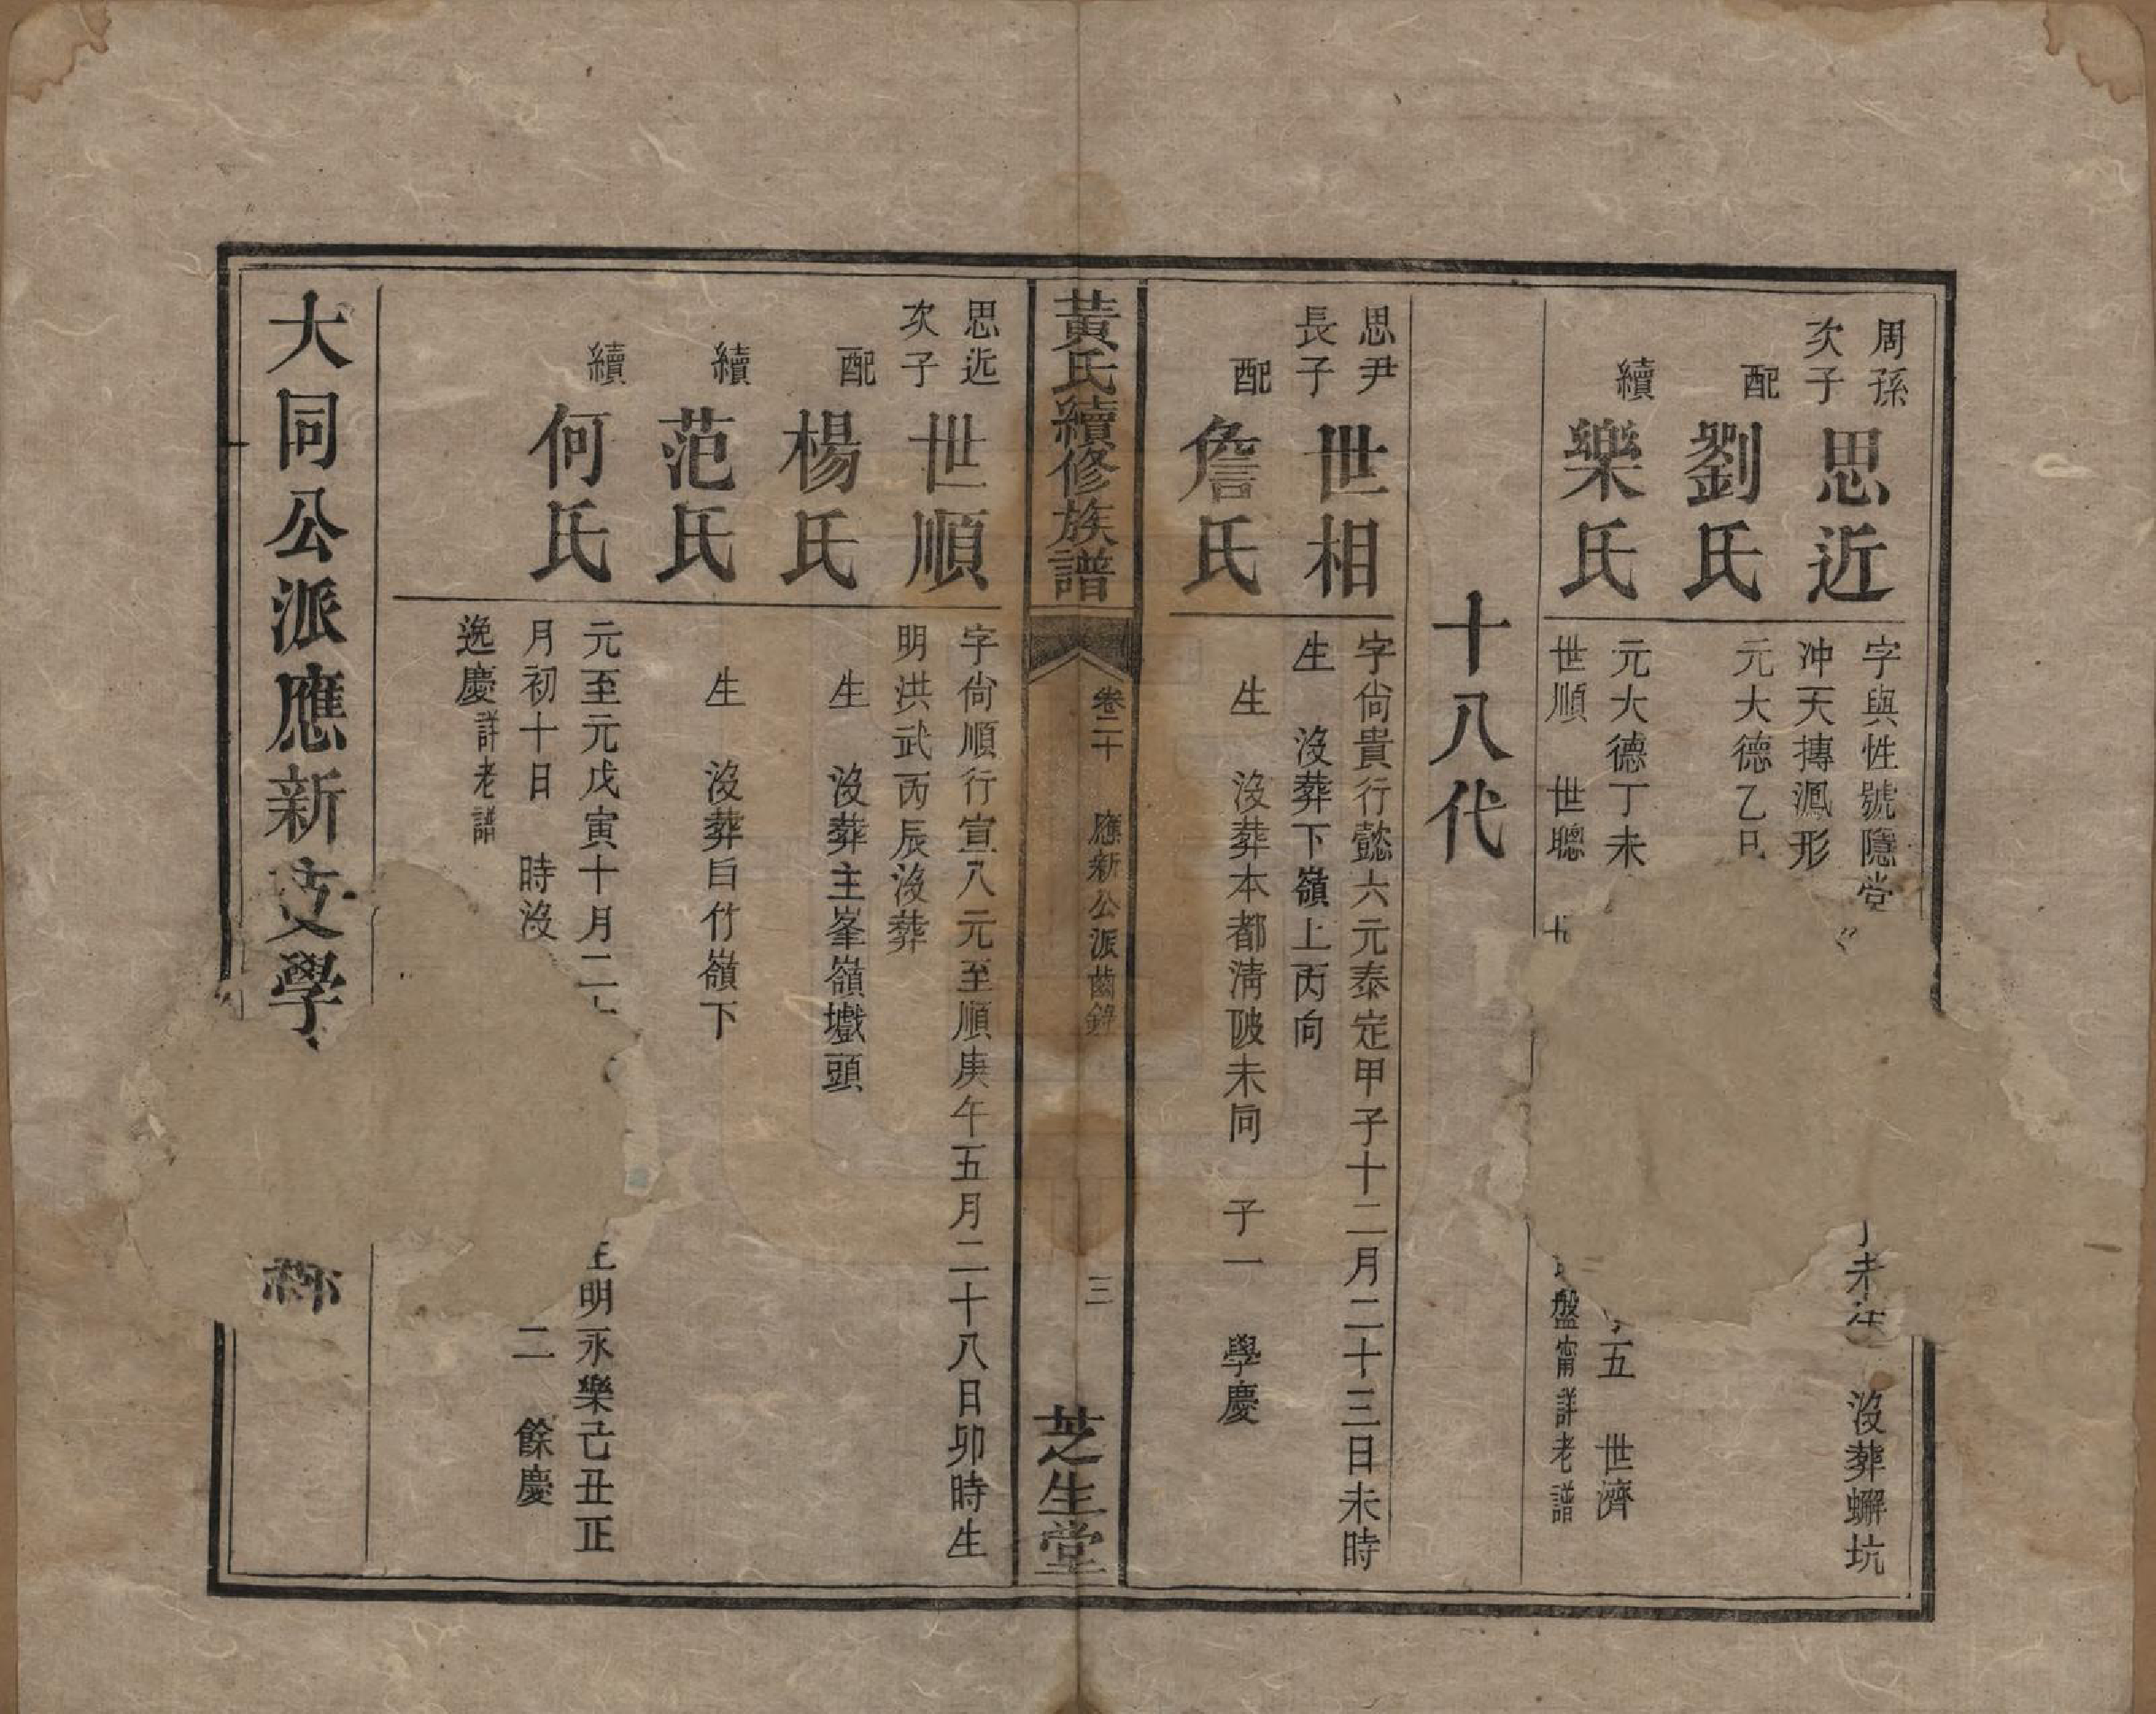 周孫
次子
思近
字與性號隱堂
未
沒葬蠏坑
沖天摶鳳形
配
劉氏
元大德乙
續
樂氏
元大德丁未
五 世濟
世順 世聰
盤甯詳老譜
十八代
思尹
長子
世相
字尙貴行懿六元泰定甲子十二月二十三日未時
生 沒葬下嶺上丙向
配
詹氏
生 沒葬本都淸陂未向 子一 學慶
黃氏續修族譜
卷二十 應新公派齒錄 三
芝生堂
思近
次子
世順
字尙順行宣八元至順庚午五月二十八日卯時生
明洪武丙辰沒葬
配
楊氏
生 沒葬主峯嶺壪頭
續
范氏
生 沒葬白竹嶺下
續
何氏
元至元戊寅十月二
明永樂己丑正
月初十日 時沒
二 餘慶
逸慶詳老譜
大同公派應新支學